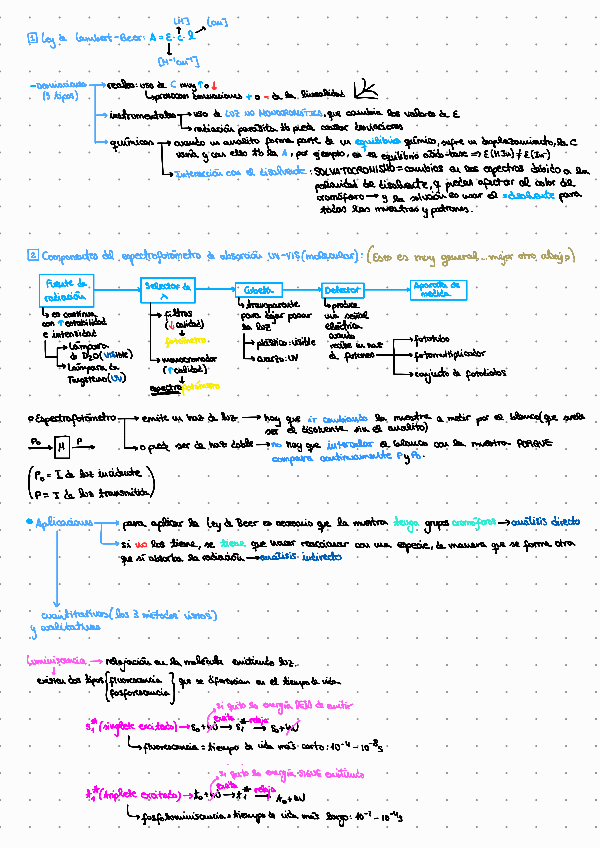 [M]
[cm]
1 Ley de Lambert-Beer: A = ε · c · l
[M⁻¹ cm⁻¹]
- Desviaciones → reales: uso de C muy ↑ o ↓
(3 tipos)
provocan desviaciones + o - de la linealidad
instrumentales → uso de LUZ NO MONOCROMÁTICA, que cambia los valores de ε
radiación parásita tb puede causar desviaciones
químicas → cuando un analito forma parte de un equilibrio químico, sufre un desplazamiento, la C
varía y con ello tb la A, por ejemplo, en el equilibrio ácido-base ⇒ ε(HIn) ≠ ε(In⁻)
Interacción con el disolvente: SOLVATOCROMISMO = cambios en los espectros debido a la
polaridad de disolvente, q puede afectar al color del
cromóforo → y la solución es usar el =disolvente para
todas las muestras y patrones.
2 Componentes del espectrofotómetro de absorción UV-VIS (molecular): (Esto es muy general... mejor otro abajo)
Fuente de radiación
Selector de λ
Cubeta
Detector
Aparato de medida
→ es continua
con ↑ estabilidad
e intensidad
→ Lámpara
de D₂O (visible)
→ Lámpara de
Tungsteno (UV)
→ filtros
(↓ calidad)
fotómetro
→ monocromador
(↑ calidad)
espectrofotómetro
→ transparente
para dejar pasar
la luz
→ plástico: visible
→ cuarzo: UV
→ produce
una señal
eléctrica
cuando
recibe un haz
de fotones
→ fototubo
→ fotomultiplicador
→ conjunto de fotodiodos
Espectrofotómetro → emite un haz de luz → hay que ir cambiando la muestra a medir por el blanco (que suele
ser el disolvente sin el analito)
P₀ → M → P
→ o puede ser de haz doble → no hay que intercalar el blanco con la muestra PORQUE
compara continuamente P y P₀.
P₀ = I de luz incidente
P = I de luz transmitida
Aplicaciones → para aplicar la Ley de Beer es necesario que la muestra tenga grupos cromóforos → análisis directo
si no los tiene, se tiene que hacer reaccionar con una especie, de manera que se forme otra
que sí absorba la radiación → análisis indirecto
cuantitativas (los 3 métodos vistos)
y cualitativas
Luminiscencia → relajación en la molécula emitiendo luz.
existen dos tipos fluorescencia
fosforescencia
que se diferencian en el tiempo de vida
si quito la energía DEJA de emitir
S₁* (singlete excitado) → S₀ + hν → excita S₁* → relaja S₀ + hν
fluorescencia = tiempo de vida más corto: 10⁻⁴ - 10⁻⁸ s
si quito la energía SIGUE emitiendo
t₁* (triplete excitado) → t₀ + hν → excita t₁* → relaja t₀ + hν
fosfoluminiscencia = tiempo de vida más largo: